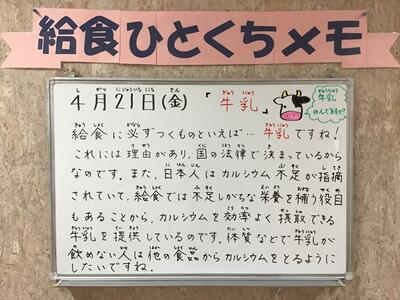 給食ひとくちメモ
4月21日(金) 「牛乳」
牛乳のんでますか?
給食に必ずつくものといえば… 牛乳ですね!
これには理由があり、国の法律で決まっているから
なのです。また、日本人はカルシウム不足が指摘
されていて、給食では不足しがちな栄養を補う役目
もあることから、カルシウムを効率よく摂取できる
牛乳を提供しているのです。体質などで牛乳が
飲めない人は他の食品からカルシウムをとるように
したいですね。